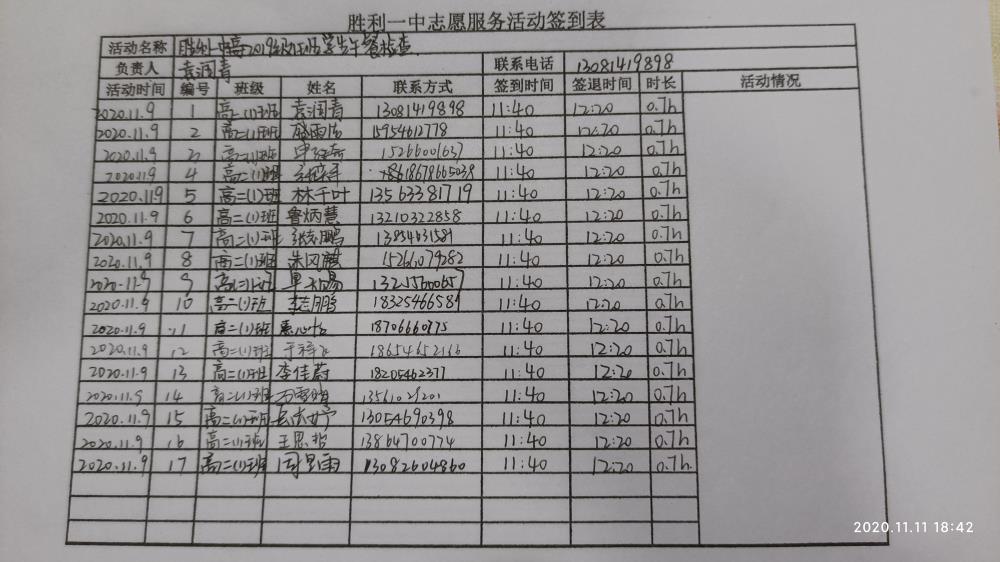 胜利一中志愿服务活动签到表
活动名称 胜利一中高2019级 学生午餐检查
负责人 袁润青 联系电话 13081419898
活动时间 编号 班级 姓名 联系方式 签到时间 签退时间 时长 活动情况
2020.11.9 1 高二(1)班 袁润青 13081419898 11:40 12:20 0.7h
2020.11.9 2 高二(1)班 15954612778 11:40 12:20 0.7h
2020.11.9 3 高二(1)班 15266001637 11:40 12:20 0.7h
2020.11.9 4 高二(1)班 +8618678665038 11:40 12:20 0.7h
2020.11.9 5 高二(1)班 林千叶 13563381719 11:40 12:20 0.7h
2020.11.9 6 高二(1)班 鲁炳慧 13210322858 11:40 12:20 0.7h
2020.11.9 7 高二(1)班 张志鹏 11:40 12:20 0.7h
2020.11.9 8 高二(1)班 朱风麒 15261079282 11:40 12:20 0.7h
2020.11.9 9 高二(1)班 11:40 12:20 0.7h
2020.11.9 10 高二(1)班 李志鹏 18325466589 11:40 12:20 0.7h
2020.11.9 11 高二(1)班 18706660775 11:40 12:20 0.7h
2020.11.9 12 高二(1)班 18654652166 11:40 12:20 0.7h
2020.11.9 13 高二(1)班 李佳蔚 18205462377 11:40 12:20 0.7h
2020.11.9 14 高二(1)班 11:40 12:20 0.7h
2020.11.9 15 高二(1)班 13054690398 11:40 12:20 0.7h
2020.11.9 16 高二(1)班 王思哲 13864700774 11:40 12:20 0.7h
2020.11.9 17 高二(1)班 周里雨 13082604860 11:40 12:20 0.7h
2020.11.11 18:42